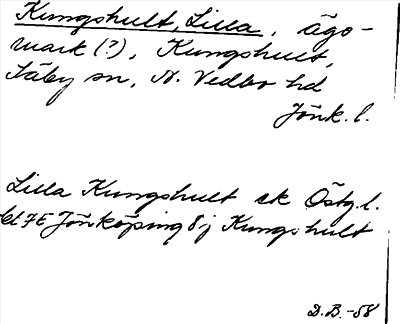 Kungshult, Lilla, ägo-
mark (?), Kungshult,
Säby sn, N. Vedbo hd
Jönk. l.
Lilla Kungshult ek Östg. l.
bl 7E Jönköping 8j Kungshult
D.B. -58